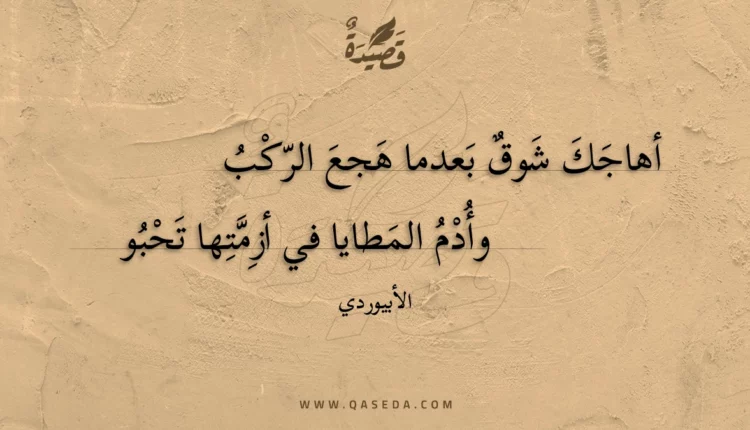 قَصِيدَةٌ
أهاجَكَ شَوقٌ بَعدما هَجعَ الرّكْبُ
وأُدْمُ المَطايا في أزِمَّتِها تَحْبُو
الأبيوردي
WWW.QASEDA.COM